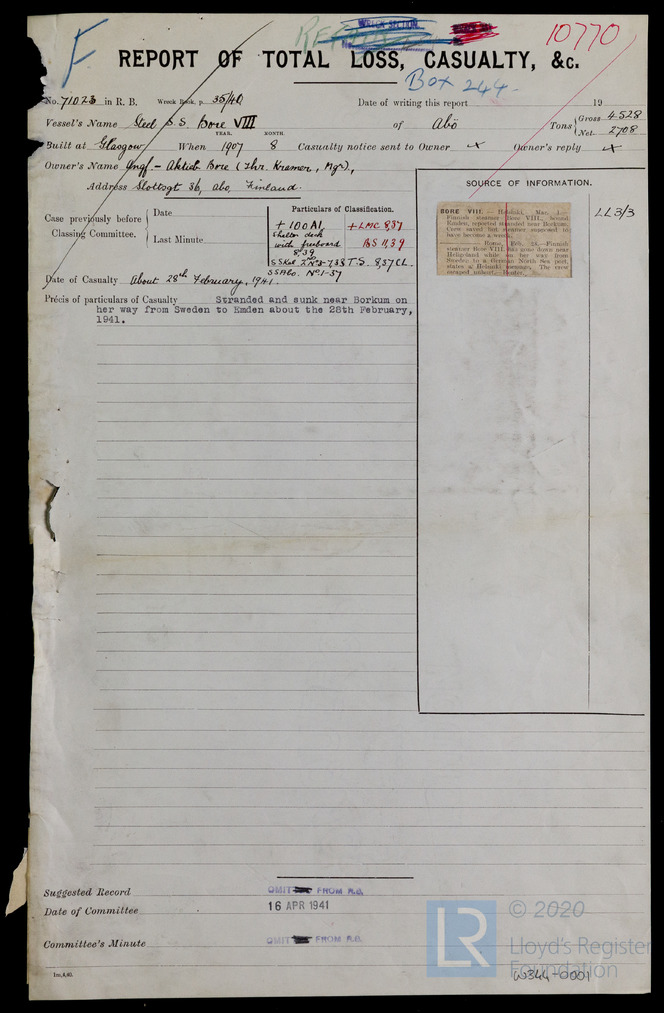 F
WRECK SECTION
10770
REPORT OF TOTAL LOSS, CASUALTY, &c.
Box 244.
No. 71023 in R. B. Wreck Book, p. 35/40 Date of writing this report 19
Vessel's Name Steel S.S. Bore VIII of Abö Tons Gross 4528
Net 2708
YEAR. MONTH.
Built at Glasgow When 1907 8 Casualty notice sent to Owner Owner's reply
Owner's Name Ångf-Aktieb. Bore (Thr. Kramer, Mgr),
Address Slottsgt 36, Abo, Finland.
SOURCE OF INFORMATION.
Case previously before Classing Committee. Date
Last Minute
Particulars of Classification.
+ 100 A1 + LMC 8,37
Shelter deck
with freeboard BS 11,39
8,39
T.S. 8,37 CL.
SSAbo. No 1-37
BORE VIII. — Helsinki, Mar. 1.—
Finnish steamer Bore VIII, bound
Emden, reported stranded near Borkum.
Crew saved but steamer supposed to
have become a wreck.
— Rome, Feb. 28.—Finnish
steamer Bore VIII. has gone down near
Heligoland while on her way from
Sweden to a German North Sea port,
states a Helsinki message. The crew
escaped unhurt.—Reuter.
LL 3/3
Date of Casualty About 28th February, 1941.
Précis of particulars of Casualty Stranded and sunk near Borkum on
her way from Sweden to Emden about the 28th February,
1941.
Suggested Record OMIT FROM R.B.
Date of Committee 16 APR 1941
Committee's Minute OMIT FROM R.B.
1m,4,40.
LR
© 2020
Lloyd's Register
Foundation
W344-0001